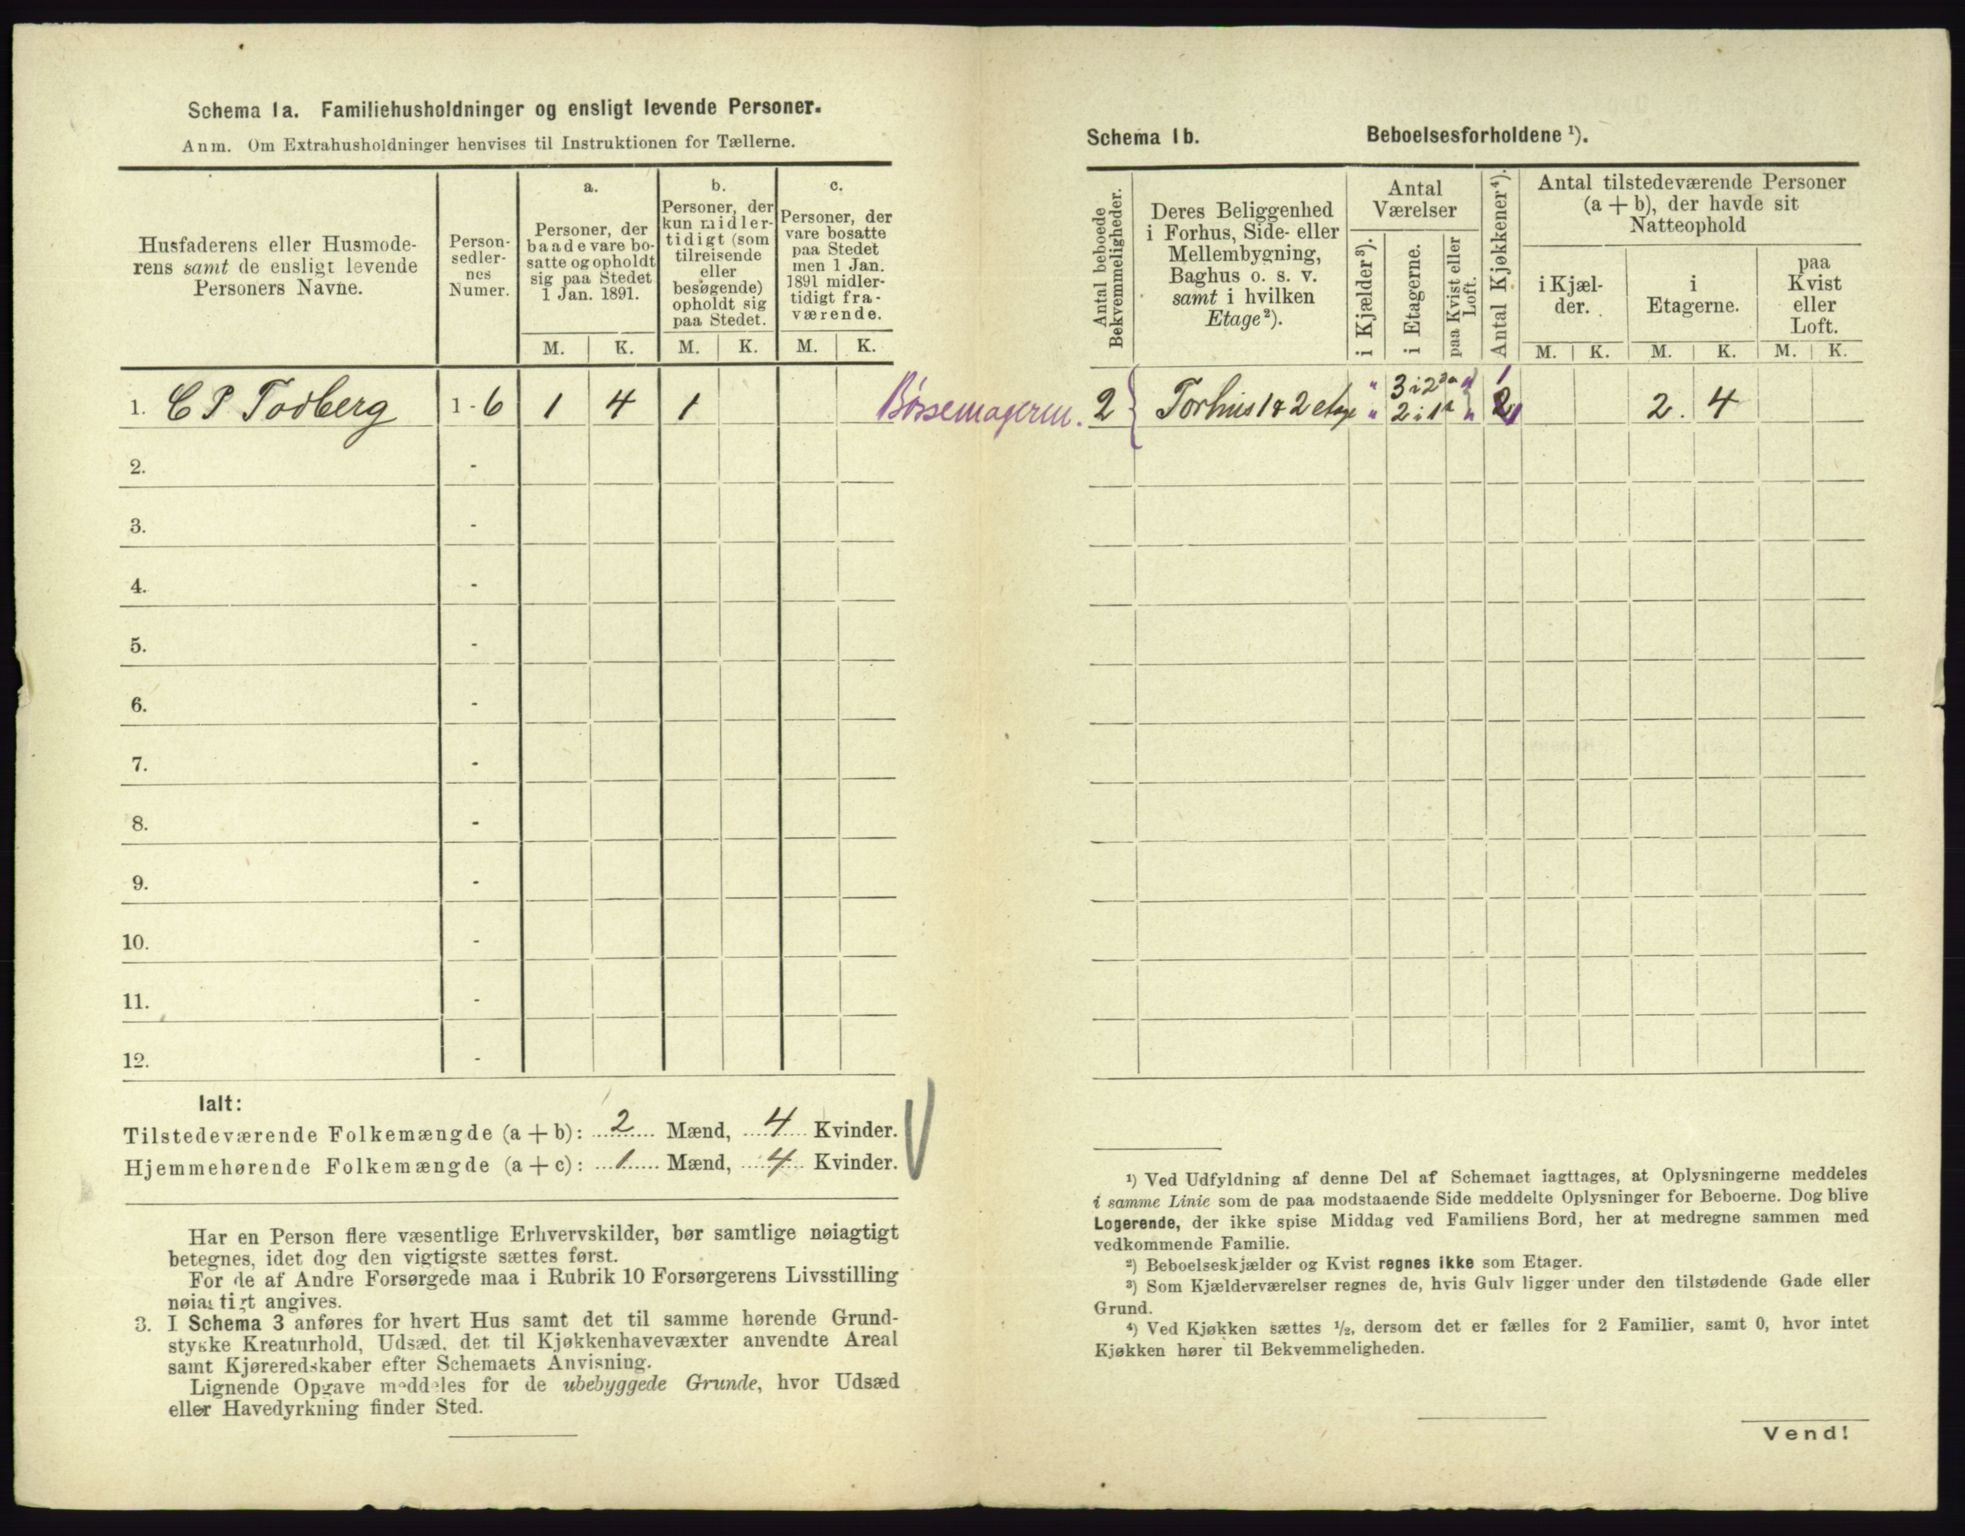 Schema 1a. Familiehusholdninger og ensligt levende Personer.
Anm. Om Extrahusholdninger henvises til Instruktionen for Tællerne.
Husfaderens eller Husmode-
rens samt de ensligt levende
Personers Navne.
Person-
sedler-
nes
Numer.
a.
Personer, der
baade vare bo-
satte og opholdt
sig paa Stedet
1 Jan. 1891.
b.
Personer, der
kun midler-
tidigt (som
tilreisende
eller
besøgende)
opholdt sig
paa Stedet.
c.
Personer, der
vare bosatte
paa Stedet
men 1 Jan.
1891 midler-
tidigt fra-
værende.
M. K. M. K. M. K.
1. C P Todberg 1 - 6 1 4 1
2. -
3. -
4. -
5. -
6. -
7. -
8. -
9. -
10. -
11. -
12. -
Ialt:
Tilstedeværende Folkemængde (a + b): 2 Mænd, 4 Kvinder.
Hjemmehørende Folkemængde (a + c): 1 Mænd, 4 Kvinder.
Har en Person flere væsentlige Erhvervskilder, bør samtlige nøiagtigt
betegnes, idet dog den vigtigste sættes først.
For de af Andre Forsørgede maa i Rubrik 10 Forsørgerens Livsstilling
nøiagtigt angives.
3. I Schema 3 anføres for hvert Hus samt det til samme hørende Grund-
stykke Kreaturhold, Udsæd, det til Kjøkkenhavevæxter anvendte Areal
samt Kjøreredskaber efter Schemaets Anvisning.
Lignende Opgave meddeles for de ubebyggede Grunde, hvor Udsæd
eller Havedyrkning finder Sted.
Schema 1b. Beboelsesforholdene ¹).
Antal beboede
Bekvemmeligheder.
Deres Beliggenhed
i Forhus, Side- eller
Mellembygning,
Baghus o. s. v.
samt i hvilken
Etage²).
Antal
Værelser
i Kjælder³).
i Etagerne.
paa Kvist eller
Loft.
Antal Kjøkkener⁴).
Antal tilstedeværende Personer
(a + b), der havde sit
Natteophold
i Kjæl-
der.
i
Etagerne.
paa
Kvist
eller
Loft.
M. K. M. K. M. K.
Børsemageren. 2 Forhus 1 & 2 etage " 3 i 2den " 1 2. 4
" 2 i 1ste " 2 1
¹) Ved Udfyldning af denne Del af Schemaet iagttages, at Oplysningerne meddeles
i samme Linie som de paa modstaaende Side meddelte Oplysninger for Beboerne. Dog blive
Logerende, der ikke spise Middag ved Familiens Bord, her at medregne sammen med
vedkommende Familie.
²) Beboelseskjælder og Kvist regnes ikke som Etager.
³) Som Kjælderværelser regnes de, hvis Gulv ligger under den tilstødende Gade eller
Grund.
⁴) Ved Kjøkken sættes ½, dersom det er fælles for 2 Familier, samt 0, hvor intet
Kjøkken hører til Bekvemmeligheden.
Vend!